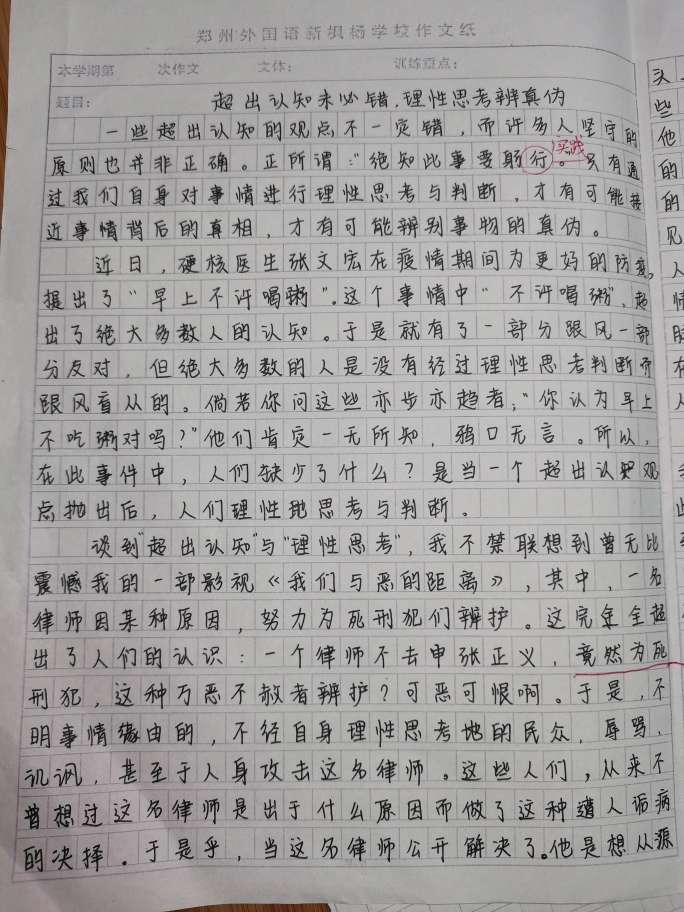 郑州外国语新枫杨学校作文纸
本学期第 次作文 文体： 训练重点：
题目： 超出认知未必错，理性思考辨真伪
一些超出认知的观点不一定错，而许多人坚守的
原则也并非正确。正所谓：“绝知此事要躬行。只有通
实践
过我们自身对事情进行理性思考与判断，才有可能接
近事情背后的真相，才有可能辨别事物的真伪。
近日，硬核医生张文宏在疫情期间为更好的防疫，
提出了“早上不许喝粥”。这个事情中“不许喝粥”，超
出了绝大多数人的认知。于是就有了一部分跟风一部
分反对，但绝大多数的人是没有经过理性思考判断而
跟风盲从的。倘若你问这些亦步亦趋者：“你认为早上
不吃粥对吗？”他们肯定一无所知，鸦口无言。所以，
在此事件中，人们缺少了什么？是当一个超出认知观
点抛出后，人们理性地思考与判断。
谈到“超出认知”与“理性思考”，我不禁联想到曾无比
震憾我的一部影视《我们与恶的距离》，其中，一名
律师因某种原因，努力为死刑犯们辨护。这完全超
出了人们的认识：一个律师不去申张正义，竟然为死
刑犯，这种万恶不赦者辨护？可恶可恨啊。于是，不
明事情缘由的，不经自身理性思考地的民众，辱骂，
讥讽，甚至于人身攻击这名律师。这些人们，从来不
曾想过这名律师是出于什么原因而做了这种遭人诟病
的决择。于是乎，当这名律师公开解决了。他是想从源
头
些
他
的
的
见
人
情